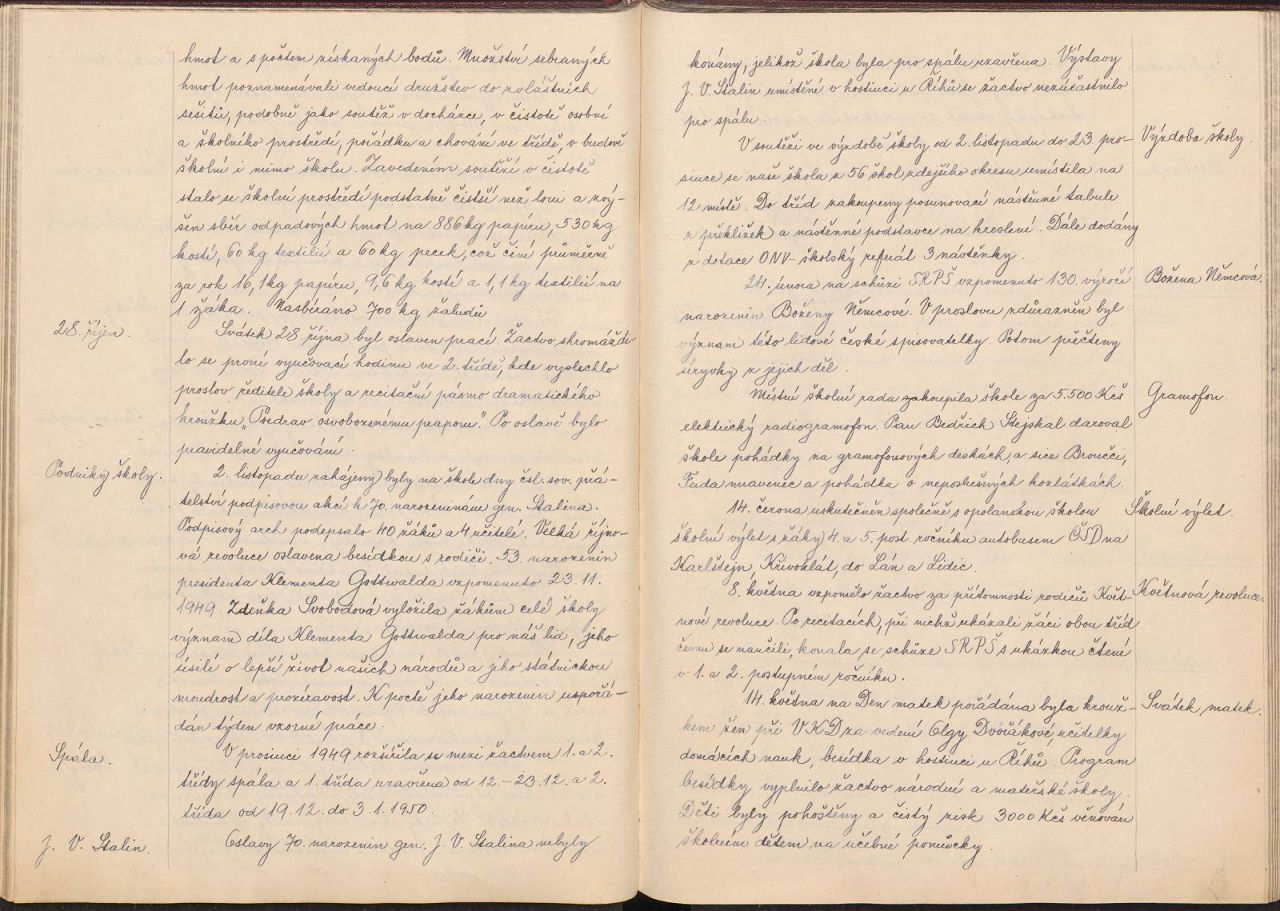 hmot a s počtem získaných bodů. Množství sebraných
hmot poznamenávali vedoucí družstev do zvláštních
sešitů, podobně jako soutěž v docházce, v čistotě osobní
a školního prostředí, pořádku a chování ve třídě, v budově
školní i mimo školu. Zavedením soutěží v čistotě
stalo se školní prostředí podstatně čistší než loni a zvý-
šen sběr odpadových hmot na 886 kg papíru, 530 kg
kostí, 60 kg textilií a 60 kg pecek, což činí průměrně
za rok 16,1 kg papíru, 9,6 kg kostí a 1,1 kg textilií na
1 žáka. Nasbíráno 700 kg žaludů
28. říjen.
Svátek 28. října byl oslaven prací. Žactvo shromáždi-
lo se první vyučovací hodinu ve 2. třídě, kde vyslechlo
proslov ředitele školy a recitační pásmo dramatického
kroužku „Pozdrav osvobozenému praporu.“ Po oslavě bylo
pravidelné vyučování.
Podniky školy.
2. listopadu zahájeny byly na škole dny čsl. sov. přá-
telství podpisovou akcí k 70. narozeninám gen. Stalina.
Podpisový arch podepsalo 40 žáků a 4 učitelé. Velká říjno-
vá revoluce oslavena besídkou s rodiči. 53. narozenin
presidenta Klementa Gottwalda vzpomenuto 23. 11.
1949. Zdeňka Svobodová vyložila žákům celé školy
význam díla Klementa Gottwalda pro náš lid, jeho
úsilí o lepší život našich národů a jeho státnickou
moudrost a prozíravost. K poctě jeho narozenin uspořá-
dán týden vzorné práce.
Spála.
V prosinci 1949 rozšířila se mezi žactvem 1. a 2.
třídy spála a 1. třída uzavřena od 12. – 23. 12. a 2.
třída od 19. 12. do 3. 1. 1950.
J. V. Stalin.
Oslavy 70. narozenin gen. J. V. Stalina nebyly
konány, jelikož škola byla pro spálu uzavřena. Výstavy
J. V. Stalin umístěné v hostinci u Říhů se žactvo nezúčastnilo
pro spálu.
Výzdoba školy.
V soutěži ve výzdobě školy od 2. listopadu do 23. pro-
since se naše škola z 56 škol zdejšího okresu umístila na
12 místě. Do tříd zakoupeny posunovací nástěnné tabule
z překližek a nástěnné podstavce na kreslení. Dále dodány
z dotace ONV - školský referát 3 nástěnky.
Božena Němcová.
24. února na schůzi SRPŠ vzpomenuto 130. výročí
narozenin Boženy Němcové. V proslovu zdůrazněn byl
význam této lidové české spisovatelky. Potom přečteny
úryvky z jejich děl.
Gramofon.
Místní školní rada zakoupila škole za 5.500 Kčs
elektrický radiogramofon. Pan Bedřich Stejskal daroval
škole pohádky na gramofonových deskách, a sice Broučci,
Ferda mravenec a pohádka o neposlušných kozlátkách.
Školní výlet.
14. června uskutečněn společně s opolanskou školou
školní výlet s žáky 4. a 5. post. ročníku autobusem ČSD na
Karlštejn, Křivoklát, do Lán a Lidic.
Květnová revoluce.
8. května vzpomělo žactvo za přítomnosti rodičů Květ-
nové revoluce. Po recitacích, při nichž ukázali žáci obou tříd
čemu se naučili, konala se schůze SRPŠ s ukázkou čtení
v 1. a 2. postupném ročníku.
Svátek matek.
14. května na Den matek pořádána byla krouž-
kem žen při VKD za vedení Olgy Dvořákové, učitelky
domácích nauk, besídka v hostinci u Říhů. Program
besídky vyplnilo žactvo národní a mateřské školy.
Děti byly pohoštěny a čistý zisk 3000 Kčs věnován
školním dětem na učebné pomůcky.